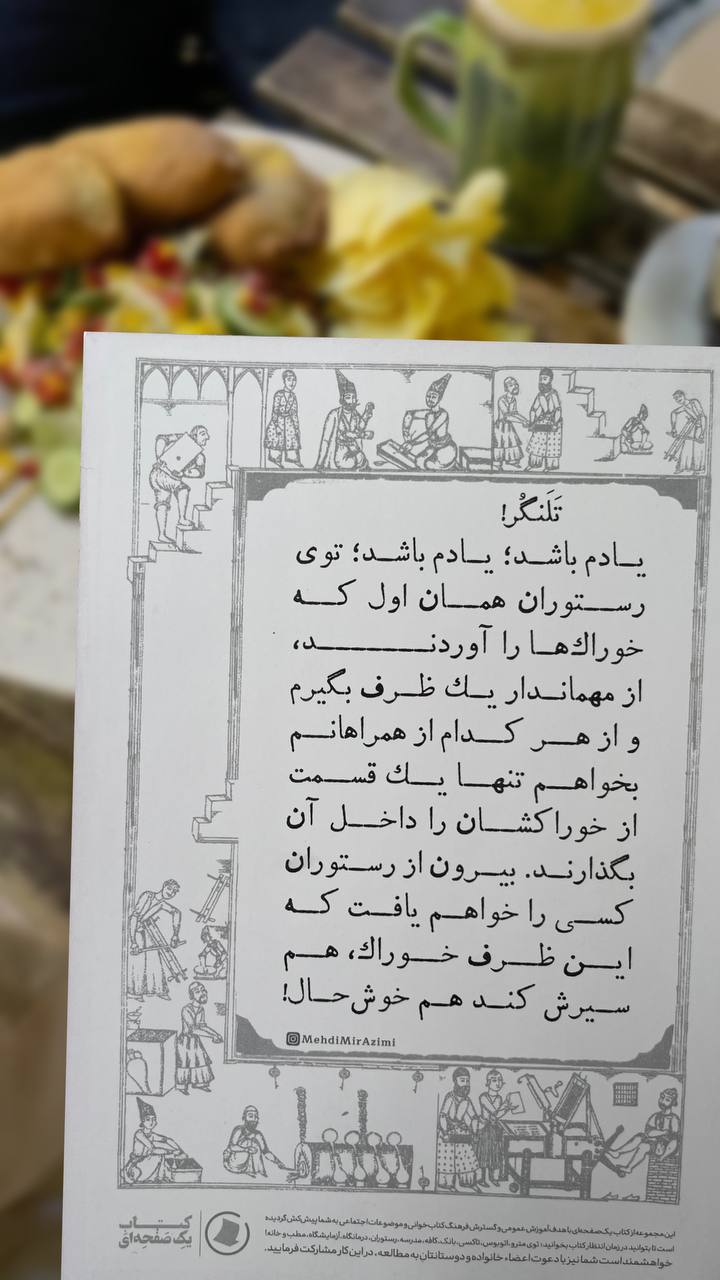 تَلَنگُر!
یادم باشد؛ یادم باشد؛ توی
رستوران همان اول که
خوراك‌ها را آوردند،
از مهماندار یك ظرف بگیرم
و از هر کدام از همراهانم
بخواهم تنها یك قسمت
از خوراکشان را داخل آن
بگذارند. بیرون از رستوران
کسی را خواهم یافت که
این ظرف خوراك، هم
سیرش کند هم خوش‌حال!
MehdiMirAzimi
این مجموعه از کتاب یک‌صفحه‌ای با هدف آموزش عمومی و گسترش فرهنگ کتاب‌خوانی و موضوعات اجتماعی به شما پیش‌کش گردیده
است تا بتوانید در زمان انتظار کتاب بخوانید؛ توی مترو، اتوبوس، تاکسی، بانک، کافه، مدرسه، رستوران، درمانگاه، آزمایشگاه، مطب و خانه!
خواهشمند است شما نیز با دعوت اعضاء خانواده و دوستانتان به مطالعه، در این کار مشارکت فرمایید.
کتاب
یک‌صفحه‌ای